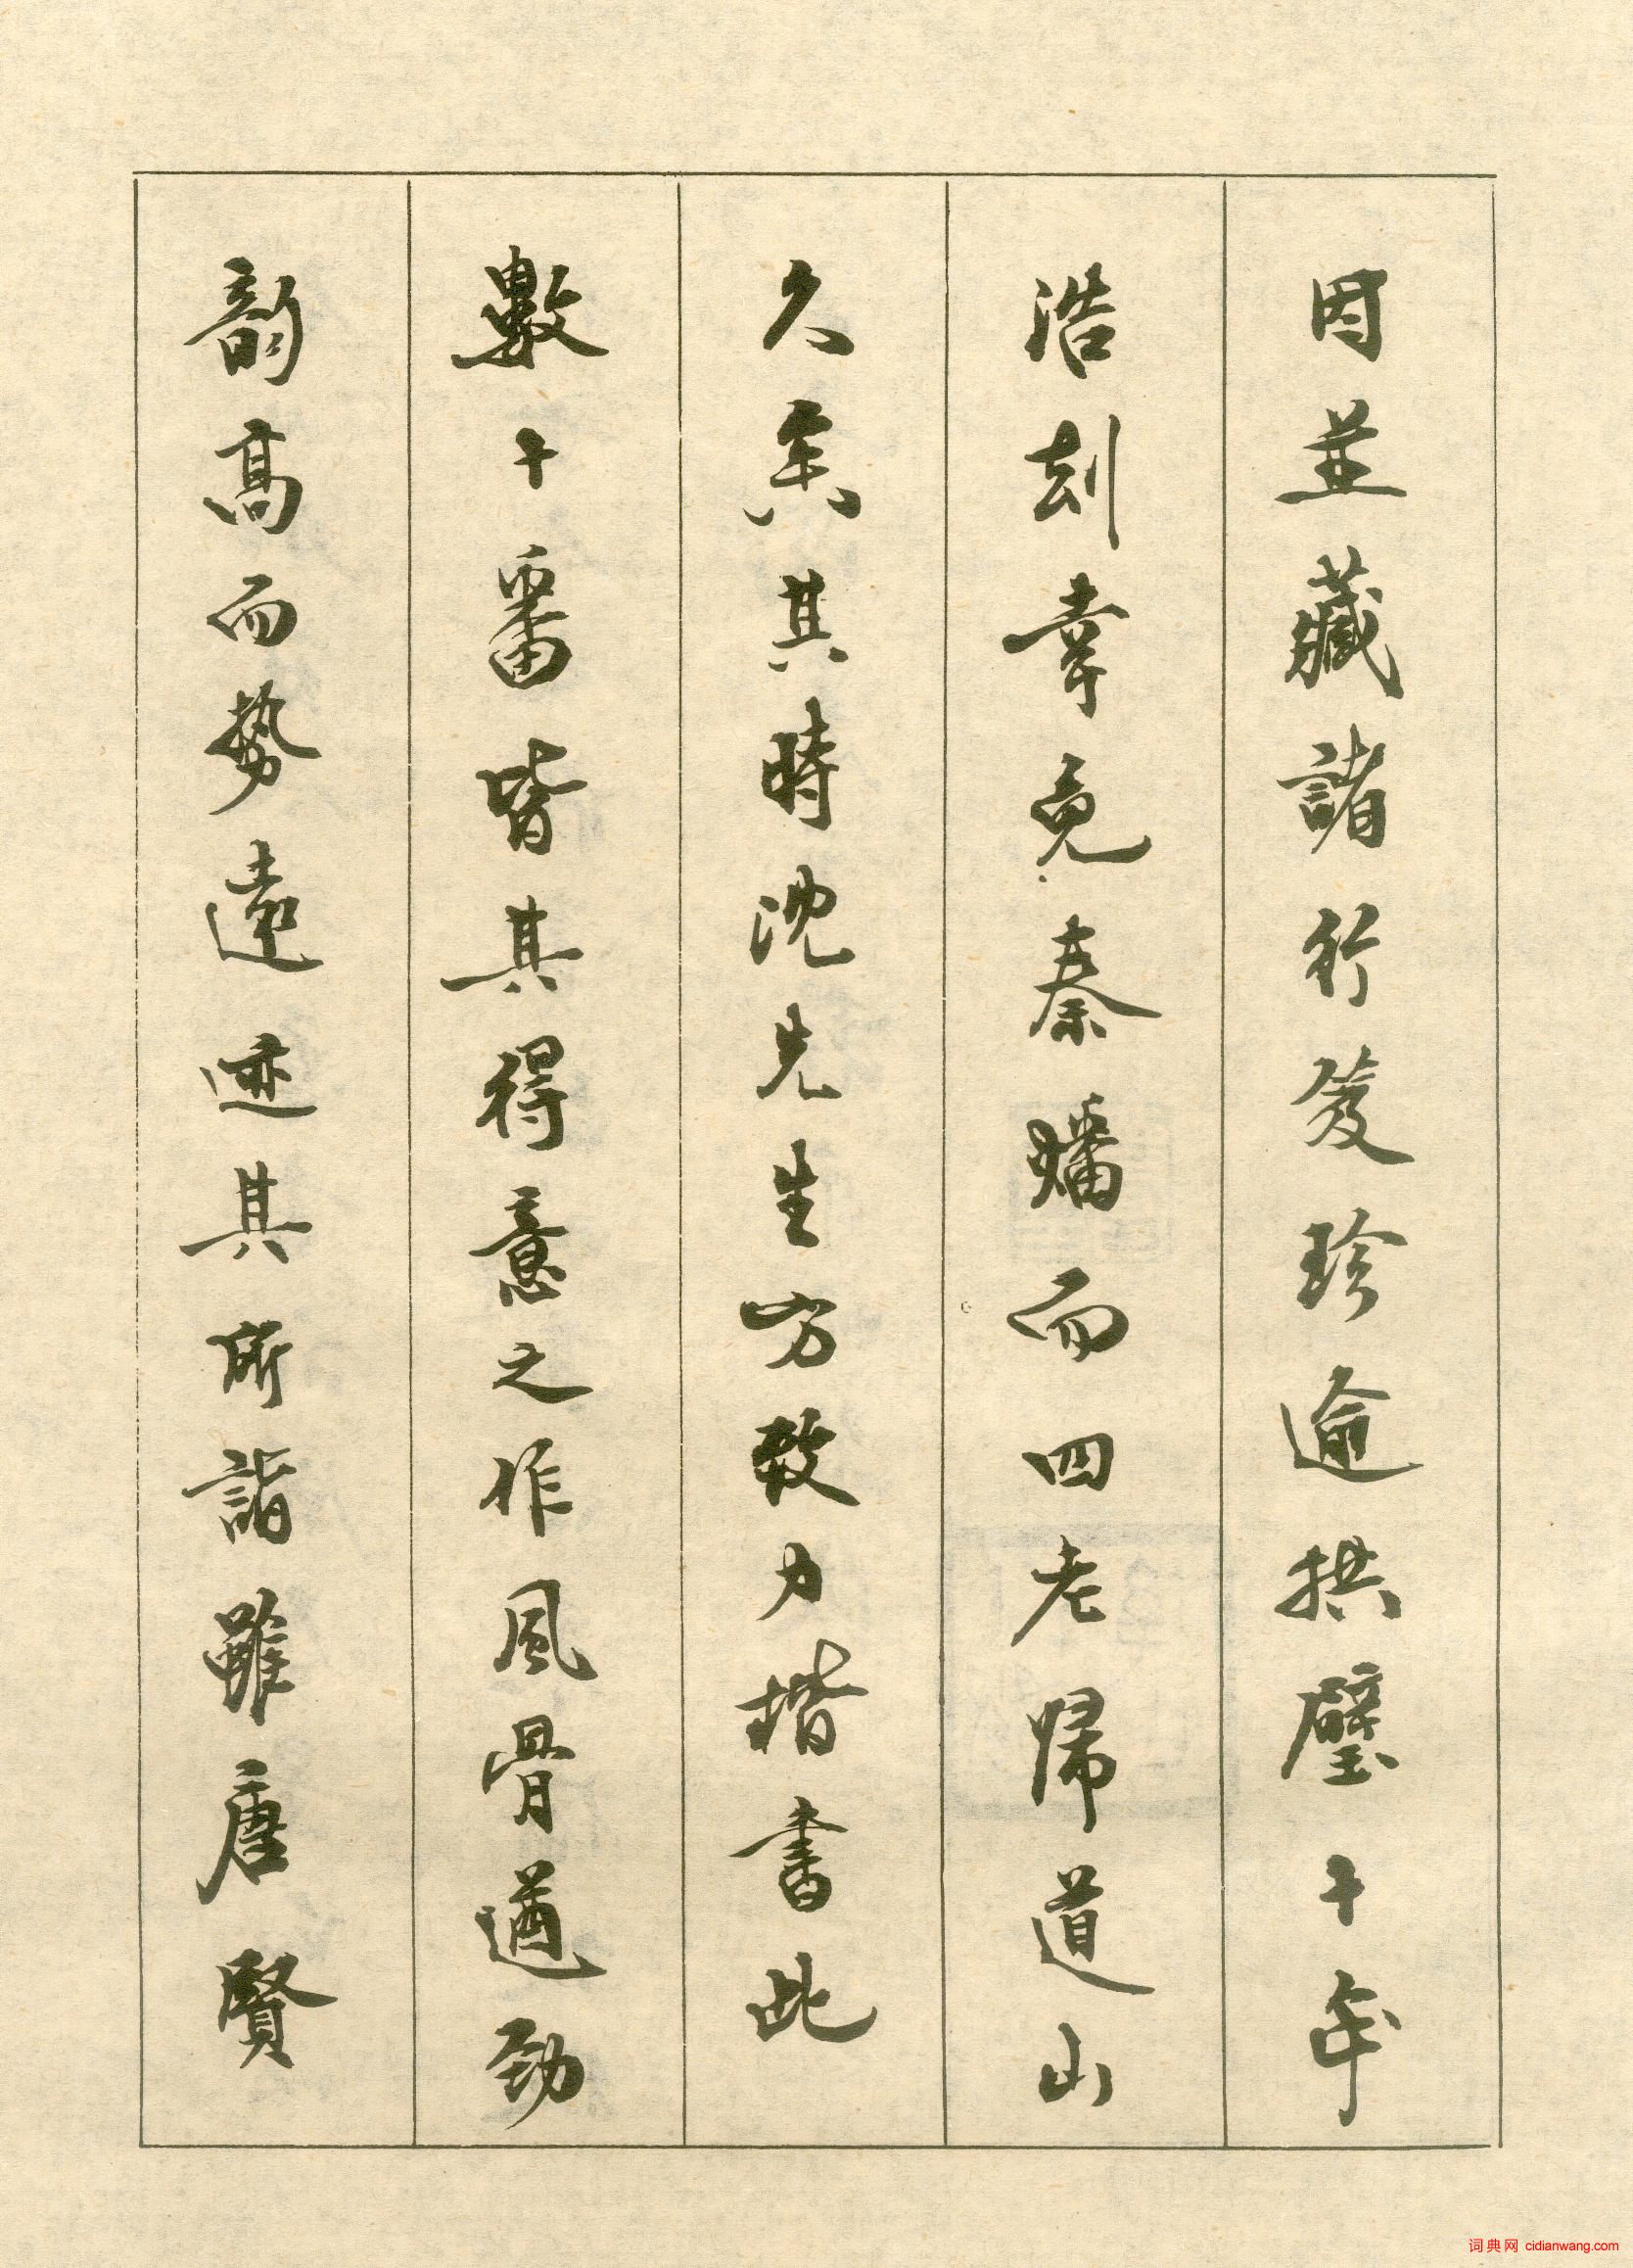 因並藏諸行笈珍逾拱璧十年
浩刦幸免秦燔而四老歸道山
久矣其時沈先生方致力楷書此
數十番皆其得意之作風骨遒勁
韵高而勢遠迹其所詣雖唐賢
词典网 cidianwang.com